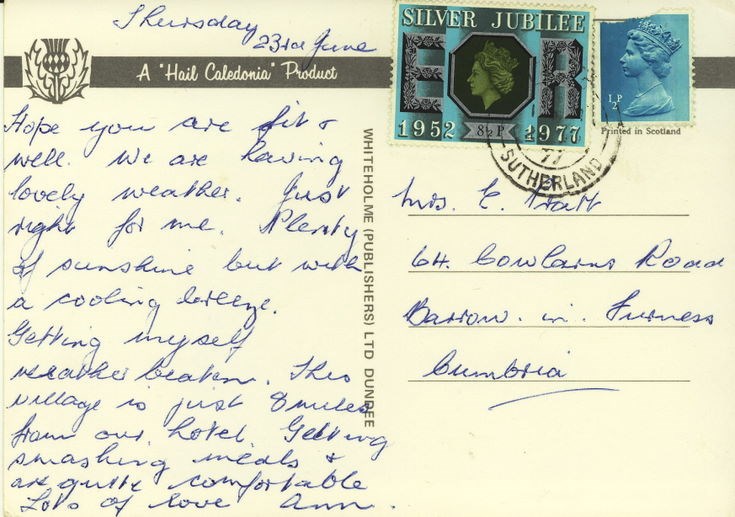 Thursday
23rd June
A "Hail Caledonia" Product
Hope you are fit &
well. We are having
lovely weather. Just
right for me. Plenty
of sunshine but with
a cooling breeze.
Getting myself
weather beaten. This
village is just 8 miles
from our hotel. Getting
smashing meals &
are quite comfortable
Lots of love Ann.
WHITEHOLME (PUBLISHERS) LTD DUNDEE
SILVER JUBILEE
E R
1952 8½P 1977
½P
Printed in Scotland
77
SUTHERLAND
Mrs. E. Pratt
64. Cowlarns Road
Barrow. in. Furness
Cumbria